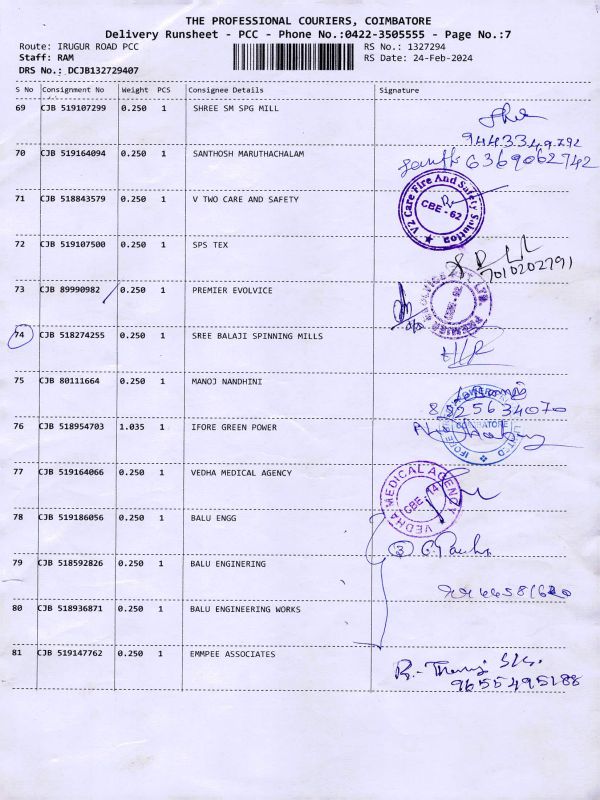 THE PROFESSIONAL COURIERS, COIMBATORE
Delivery Runsheet - PCC - Phone No.:0422-3505555 - Page No.:7
Route: IRUGUR ROAD PCC RS No.: 1327294
Staff: RAM RS Date: 24-Feb-2024
DRS No.: DCJB132729407
S No Consignment No Weight PCS Consignee Details Signature
69 CJB 519107299 0.250 1 SHREE SM SPG MILL
9443349792
70 CJB 519164094 0.250 1 SANTHOSH MARUTHACHALAM
6369062742
71 CJB 518843579 0.250 1 V TWO CARE AND SAFETY
V2 Care Fire And Safety Solution
CBE - 62
72 CJB 519107500 0.250 1 SPS TEX
7010202791
73 CJB 89990982 0.250 1 PREMIER EVOLVICE
74 CJB 518274255 0.250 1 SREE BALAJI SPINNING MILLS
75 CJB 80111664 0.250 1 MANOJ NANDHINI
8825634070
76 CJB 518954703 1.035 1 IFORE GREEN POWER
COIMBATORE
77 CJB 519164066 0.250 1 VEDHA MEDICAL AGENCY
VEDHA MEDICAL AGENCY
CBE - 14
78 CJB 519186056 0.250 1 BALU ENGG
3
79 CJB 518592826 0.250 1 BALU ENGINERING
80 CJB 518936871 0.250 1 BALU ENGINEERING WORKS
81 CJB 519147762 0.250 1 EMMPEE ASSOCIATES
9655495188